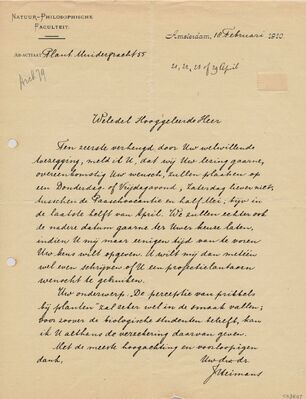 Natuur-Philosophische
Faculteit.
Ab-actiaat Plant. Muidergracht 55
Amsterdam, 18 Februari 1910
21, 22, 28 of 29 April
Weledel Hooggeleerde Heer
Ten zeerste verheugd door Uw welwillende
toezegging, meld ik U, dat wij Uw lezing gaarne,
overeenkomstig Uw wensch, zullen plaatsen op
een Donderdag of Vrijdagavond, Zaterdag liever niet,
tusschen de Paaschvacantie en half Mei, zijn in
de laatste helft van April. We zullen echter ook
de nadere datum gaarne ter Uwer keuze laten,
indien U mij maar eenigen tijd van te voren
Uw keus wilt opgeven. U wilt mij dan meteen
wel even schrijven of U een projectielantaren
wenscht te gebruiken.
Uw onderwerp "De perceptie van prikkels
bij planten" zal zeker wel in de smaak vallen;
voor zoover de biologische studenten betreft, kan
ik U althans de verzekering daarvan geven.
Met de meeste hoogachting en voorloopigen
dank,
Uw dw. dr.
J Heimans